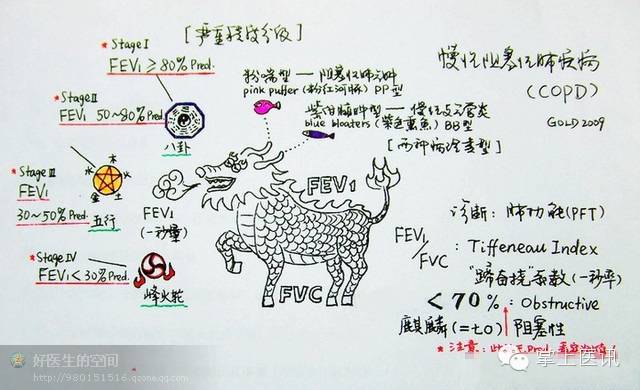 [严重程度分级]
*Stage I
FEV₁ ≥ 80% Pred.
*Stage II
FEV₁ 50~80% Pred.
八卦
*Stage III
FEV₁
30~50% Pred.
木
火
水
金
土
五行
*Stage IV
FEV₁ < 30% Pred.
烽火轮
FEV₁
(一秒量)
粉喘型 — 阻塞性肺气肿
pink puffer (粉红河豚) PP型
紫绀臃肿型 — 慢性支气管炎
blue bloaters (紫色熏鱼) BB型
[两种病理类型]
FEV₁
FVC
慢性阻塞性肺疾病
(COPD)
GOLD 2009
诊断: 肺功能(PFT)
FEV₁/FVC : Tiffeneau Index
(一秒率)
< 70% : Obstructive
麒麟(= to) 阻塞性
*注意:
好医生的空间
http://980151516.qzone.qq.com
掌上医讯